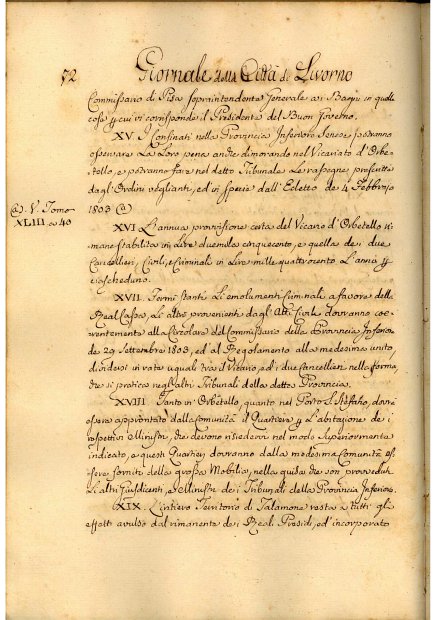 72
Giornale della Città di Livorno
Commissario di Pisa Sopraintendente Generale ai Bagni in quelle
cose p cui vi corrisponde il Presidente del Buon Governo.
XV I Confinati nella Provincia Inferiore Senese potranno
osservare La Loro pena anche dimorando nel Vicariato d'Orbe-
tello, e potranno fare nel detto Tribunale Le rassegne prescritte
dagl'Ordini veglianti, ed in specie dall'Editto de 4 Febbrajo
1803 @
@ V. Tomo
XLIII a 43
XVI L'annua provvisione certa del Vicario d'Orbetello ri-
mane stabilito in Lire duemila cinquecento, e quella dei due
Cancellieri, Civili, e Criminali in Lire mille quattrocento L'anno p
ciascheduno.
XVII. Fermi stanti Li emolumenti Criminali a favore della
Real Cassa, Li altri provenienti dagl'Atti Civili dovranno coe-
rentemente alla Circolare del Commissario della Provincia Inferiore
de 29 Settembre 1803, ed al Regolamento alla medesima unito,
dividersi in rate uguali tra il Vicario, ed i due Cancellieri nella forma,
che si pratica negl'altri Tribunali della detta Provincia.
XVIII Tanto in Orbetello, quanto nel Porto S. Stefano, dovrà
essere approntato dalla Comunità il Quartiere p L'abitazione dei
respettivi Ministri, che devono risiedervi nel modo Superiormente
indicato, e questi Quartieri dovranno dalla medesima Comunità es-
sere forniti della grossa Mobilia, nella guisa che son provveduti
Li altri Giusdicenti, e Ministri dei Tribunali della Provincia Inferiore.
XIX. L'intiero Territorio di Talamone resta a tutti gli
effetti avulso dal rimanente dei Reali Presidj, ed incorporato